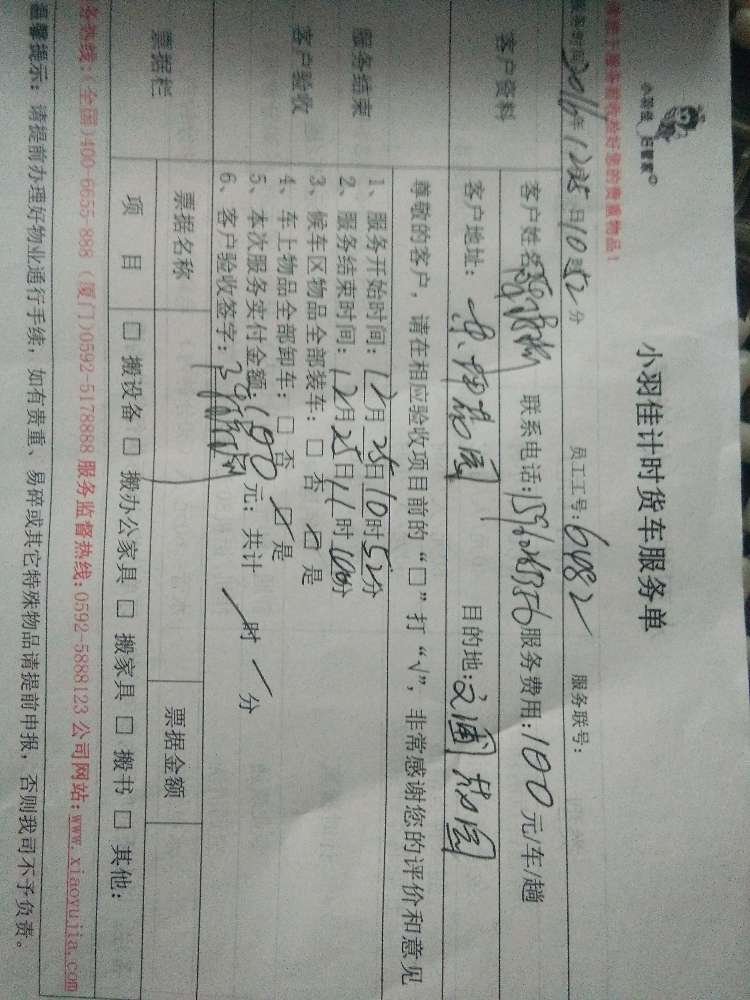 小羽佳 妇管家
小羽佳计时货车服务单
请您于服务前收拾好您的贵重物品！
服务时间：2016年12月25日10时52分 员工工号：6482 服务联号：
客户资料
客户姓名 联系电话： 服务费用：100元/车/趟
客户地址： 花园 目的地：文圃 花园
尊敬的客户，请在相应验收项目前的“□”打“√”，非常感谢您的评价和意见
服务结束
客户验收
1、服务开始时间：12月25日10时52分
2、服务结束时间：12月25日11时10分
3、候车区物品全部装车：□ 否 ☑ 是
4、车上物品全部卸车：□ 否 ☑ 是
5、本次服务实付金额：100元：共计 / 时 / 分
6、客户验收签字：
票据栏
票据名称 票据金额
项 目 □ 搬设备 □ 搬办公家具 □ 搬家具 □ 搬书 □ 其他：
务热线：(全国)400-6655-888 (厦门)0592-5178888 服务监督热线：0592-5888123 公司网站：www.xiaoyujia.com
温馨提示：请提前办理好物业通行手续，如有贵重、易碎或其它特殊物品请提前申报，否则我司不予负责。